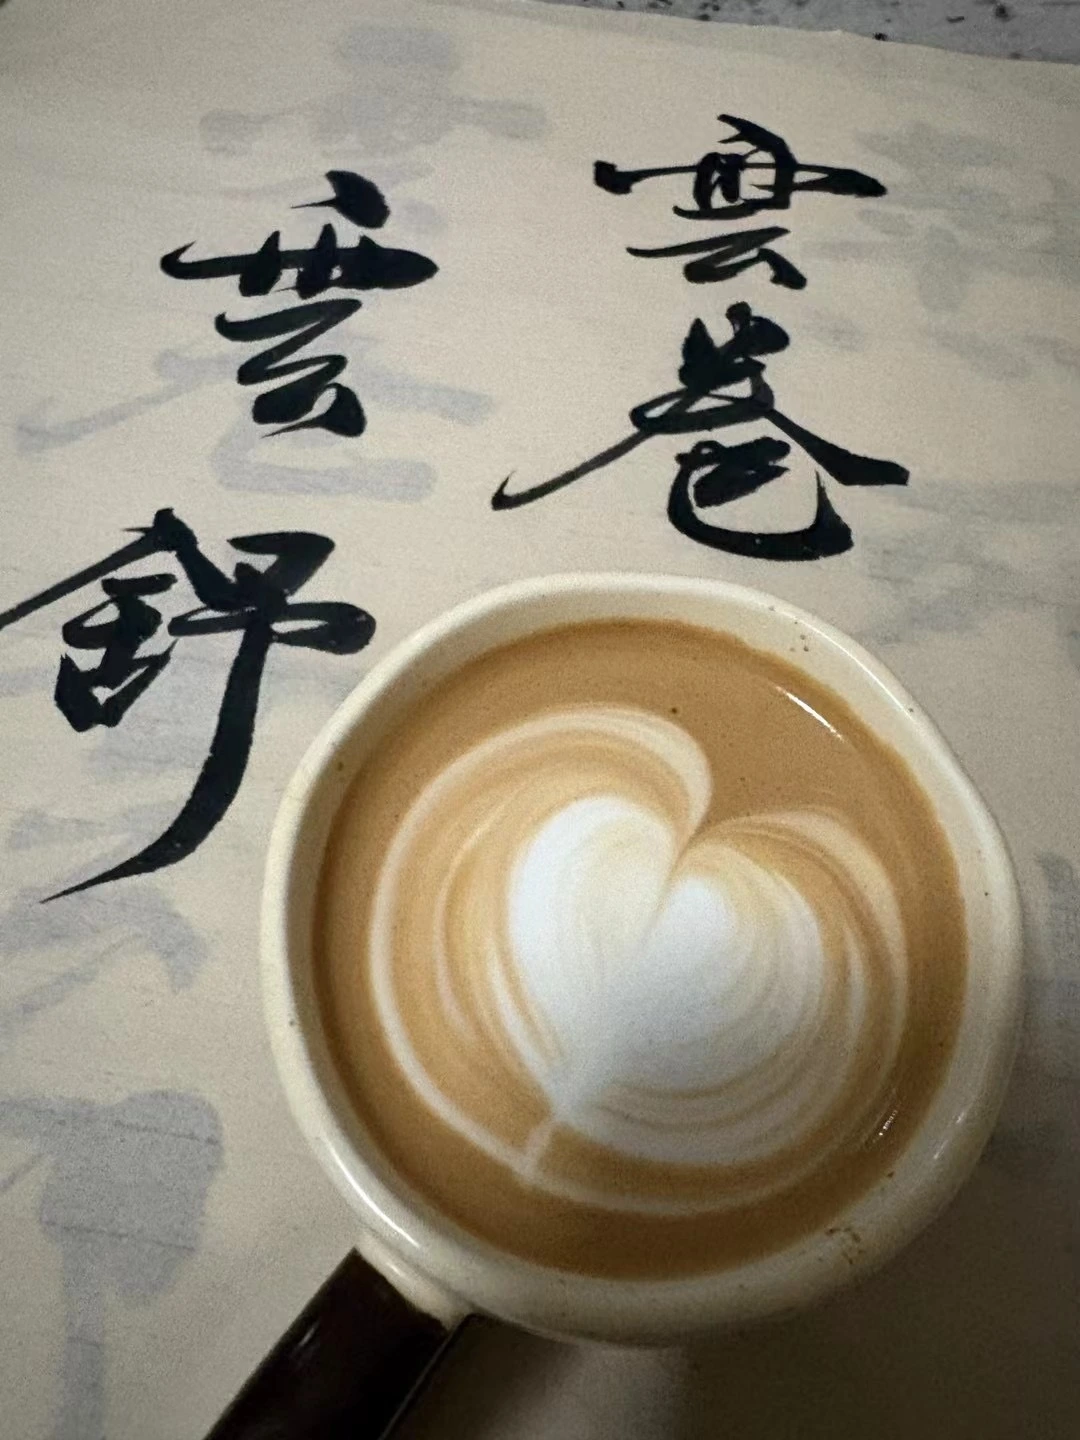 雲卷
雲舒